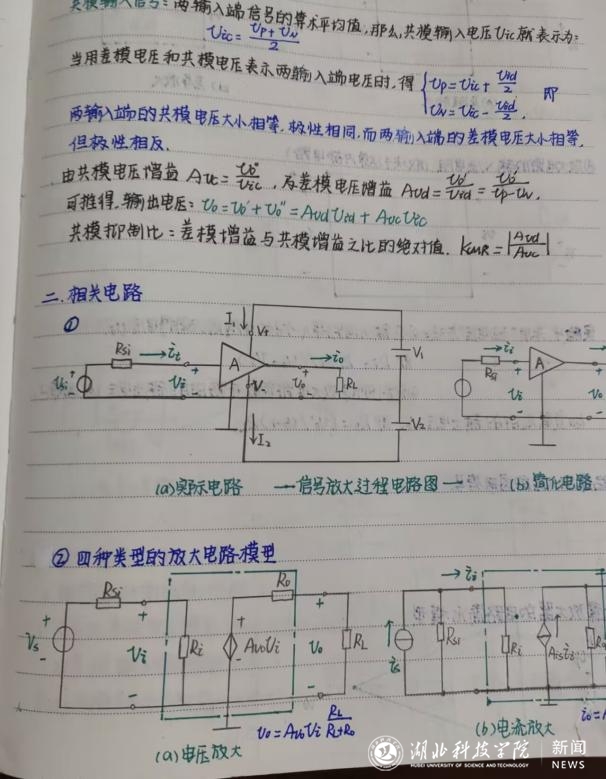 共模输入信号：两输入端信号的算术平均值，那么，共模输入电压Vic就表示为：
Vic = (Vp + VN) / 2
当用差模电压和共模电压表示两输入端电压时，得 { Vp = Vic + Vid/2 即
VN = Vic - Vid/2
两输入端的共模电压大小相等，极性相同，而两输入端的差模电压大小相等，
但极性相反．
由共模电压增益 Avc = Vo''/Vic ，及差模电压增益 Avd = Vo'/Vid = Vo'/(Vp-VN)
可推得，输出电压：Vo = Vo' + Vo'' = Avd Vid + Avc Vic
共模抑制比：差模增益与共模增益之比的绝对值． KCMR = |Avd/Avc|
二、相关电路
①
I1 V1
Rsi ii A io V1 Rsi ii A
Vs Vi Vo RL Vi Vo
I2 V2
(a)实际电路 —信号放大过程电路图— (b)简化电路
② 四种类型的放大电路模型
Rsi Ro ii
Vs Vi Ri AvoVi Vo RL is Rsi Ri Aisii Ro
Vo = AvoVi RL/(RL+Ro) io=
(a)电压放大 (b)电流放大
湖北科技学院 新闻
HUBEI UNIVERSITY OF SCIENCE AND TECHNOLOGY NEWS